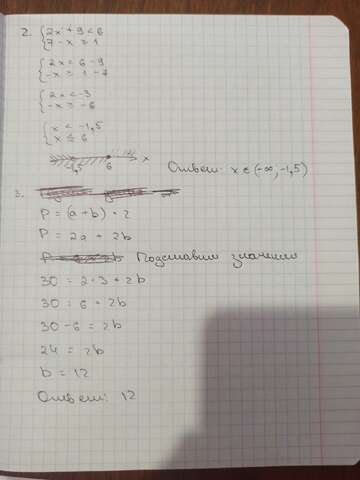 2. { 2x + 9 < 6
7 - x ≥ 1
{ 2x < 6 - 9
-x ≥ 1 - 7
{ 2x < -3
-x ≥ -6
{ x < -1,5
x ≤ 6
-1,5 6 x
Ответ: x ∈ (-∞, -1,5)
3.
P = (a + b) · 2
P = 2a + 2b
Подставим значения
30 = 2 · 3 + 2b
30 = 6 + 2b
30 - 6 = 2b
24 = 2b
b = 12
Ответ: 12